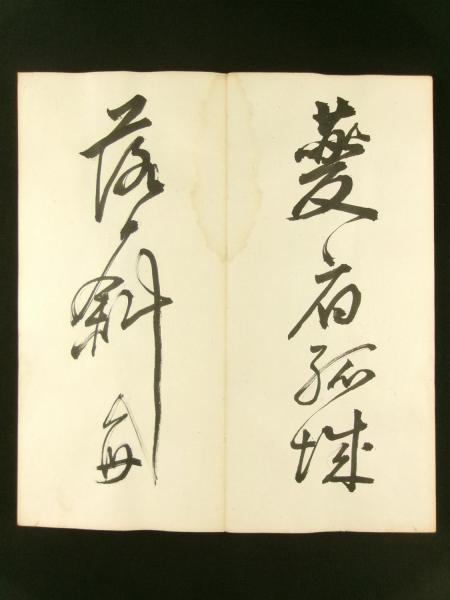 夔府孤城
落斜每